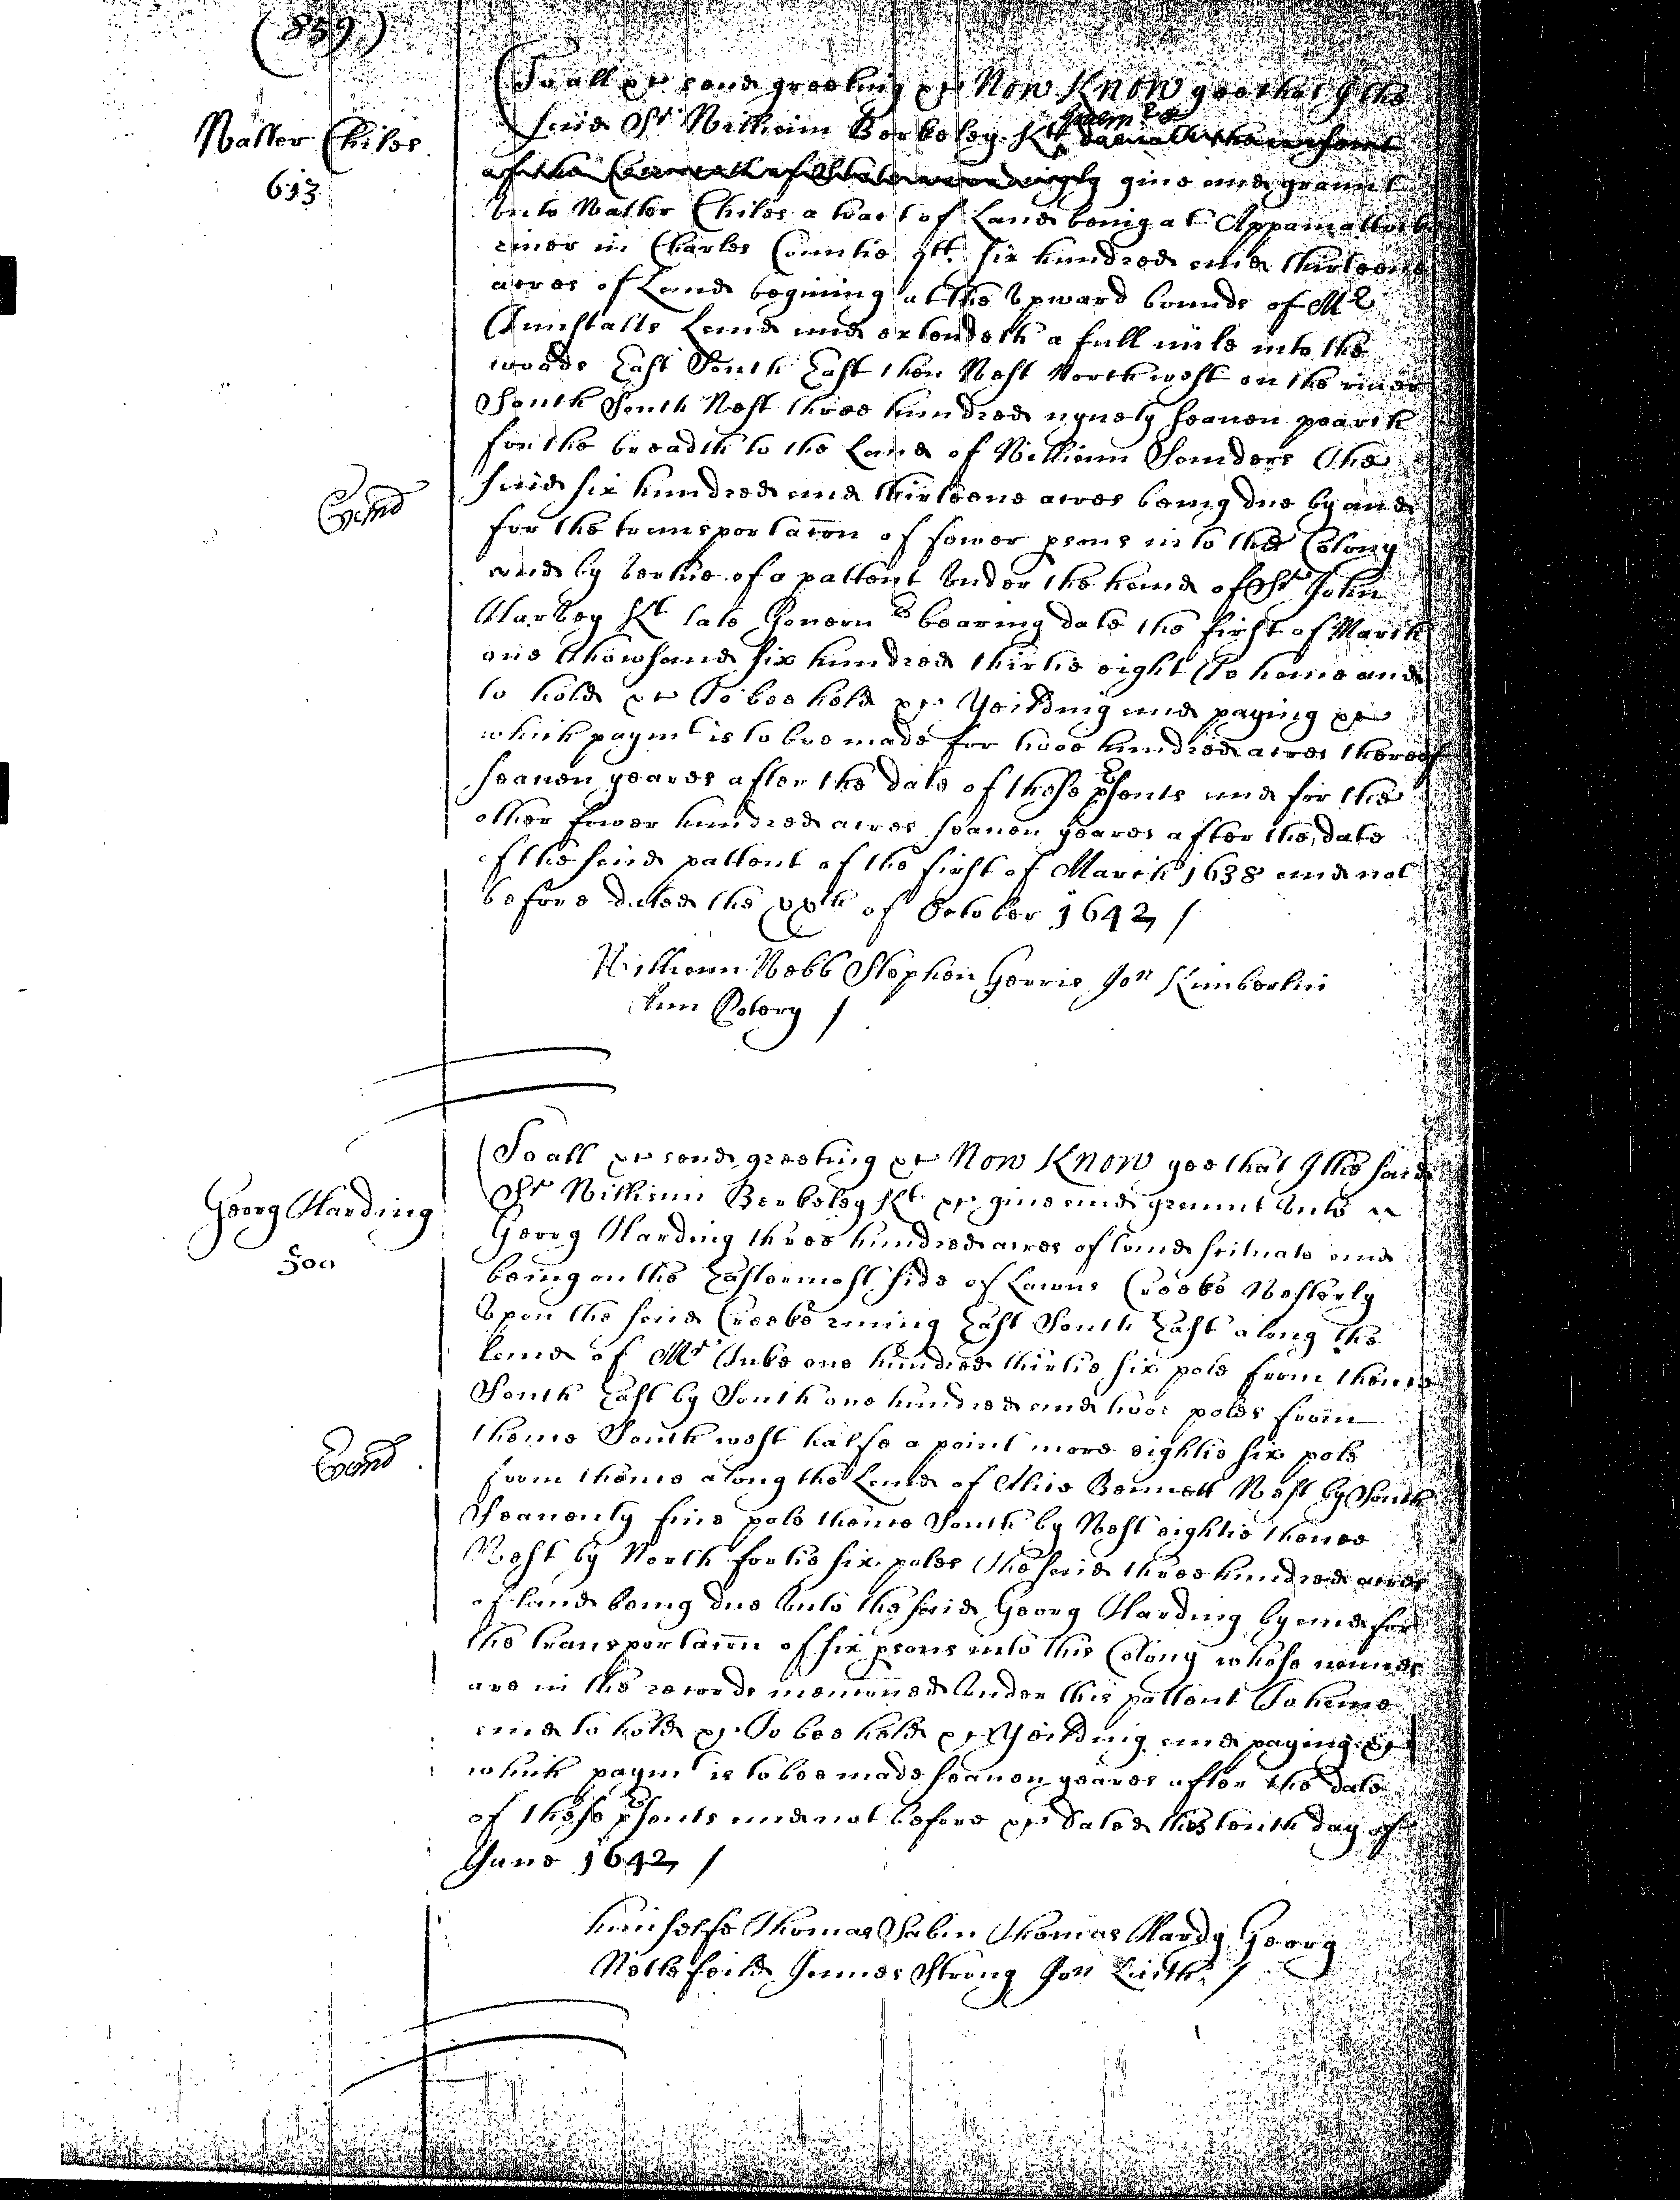 (859)
To all &c send greeting &c Now Know yee that I the
said Sr William Berkeley Kt Governr &c
give and graunt
Walter Chiles
613
unto Walter Chiles a tract of Land being at Appamattock
river in Charles Countie qtt. six hundred and thirteene
acres of Land begining at the upward bounds of Mr
Tunstalls Land and extendeth a full mile into the
woods East South East then West Northwest on the river
South South West three hundred nynety seaven pearch
for the breadth to the Land of William Sanders The
Exmd
said six hundred and thirteene acres being due by and
for the transportacon of fower psons into this Colony
and by vertue of a pattent under the hand of Sr John
Harvey Kt late Governr bearing date the first of March
one thowsand six hundred thirtie eight To have and
to hold &c To bee held &c Yeilding and paying &c
which paymt is to bee made for twoe hundred acres thereof
seaven yeares after the date of these psents and for the
other fower hundred acres seaven yeares after the date
of the said pattent of the first of March 1638 and not
before dated the xxth of October 1642 /
William Webb Stephen Gerris Jon Kimberlin
Ann Colery /
To all &c send greeting &c Now Know yee that I the said
Sr William Berkeley Kt &c give and graunt unto
Georg Harding
300
Georg Harding three hundred acres of land scituate and
being on the Eastermost side of Lawns Creeke Westerly
upon the said Creeke runing East South East along the
land of Mr Juke one hundred thirtie six pole from thence
South East by South one hundred and twoe poles from
Exmd
thence Southwest halfe a point more eightie six pole
from thence along the Land of Alice Bennett West by South
Seaventy five pole thence South by West eightie thence
West by North fortie six poles The said three hundred acres
of land being due unto the said Georg Harding by and for
the transportacon of six psons into this Colony whose names
are in the records menconed under this pattent To have
and to hold &c To bee held &c Yeilding and paying &c
which paymt is to bee made seaven yeares after the date
of these psents and not before &c Dated the tenth day of
June 1642 /
himselfe Thomas Sabin Thomas Hardy Georg
Nettlefeild James Strong Jon Leith /